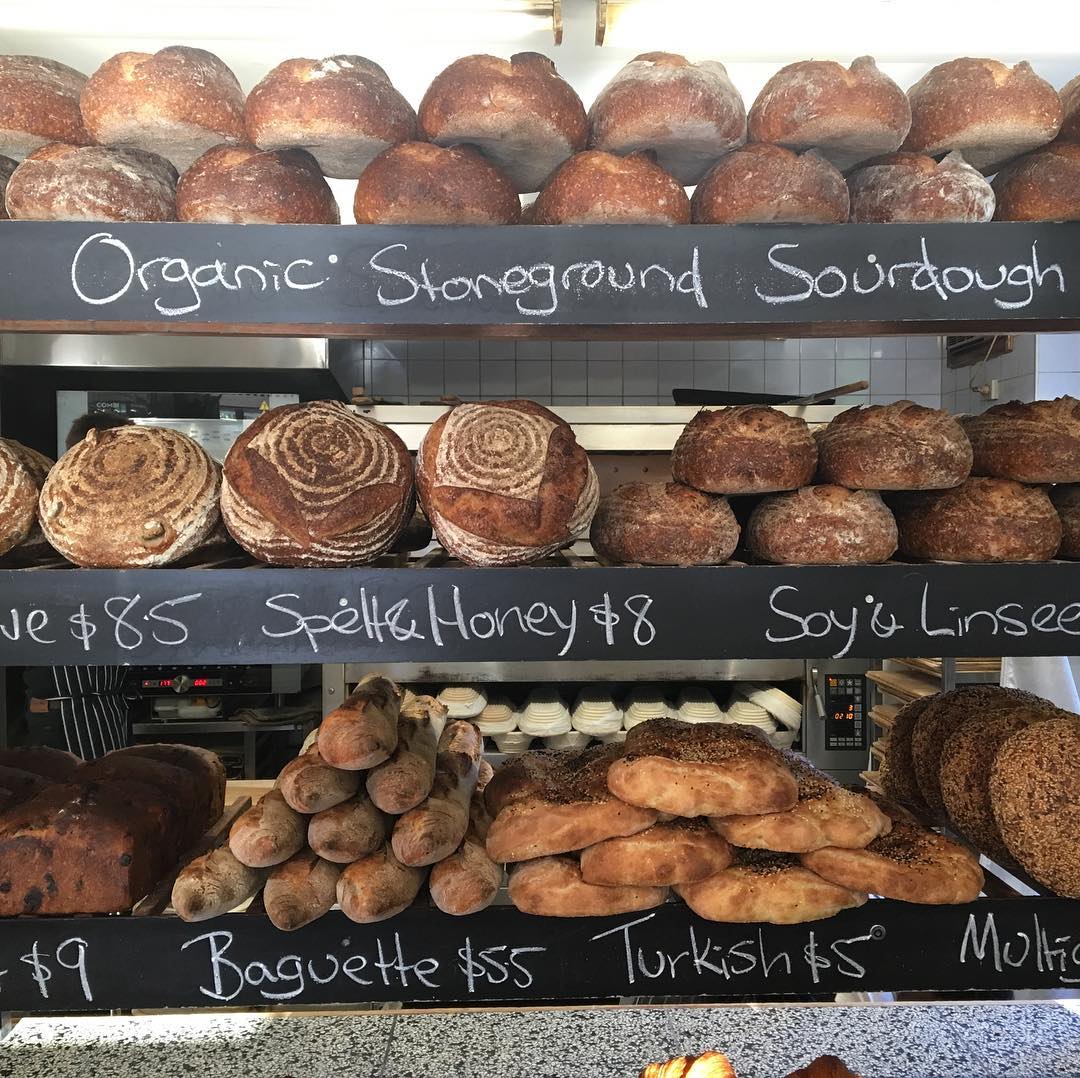 Organic Stoneground Sourdough
$8.5 Spelt & Honey $8 Soy & Linsee
$9 Baguette $55 Turkish $5 Multig